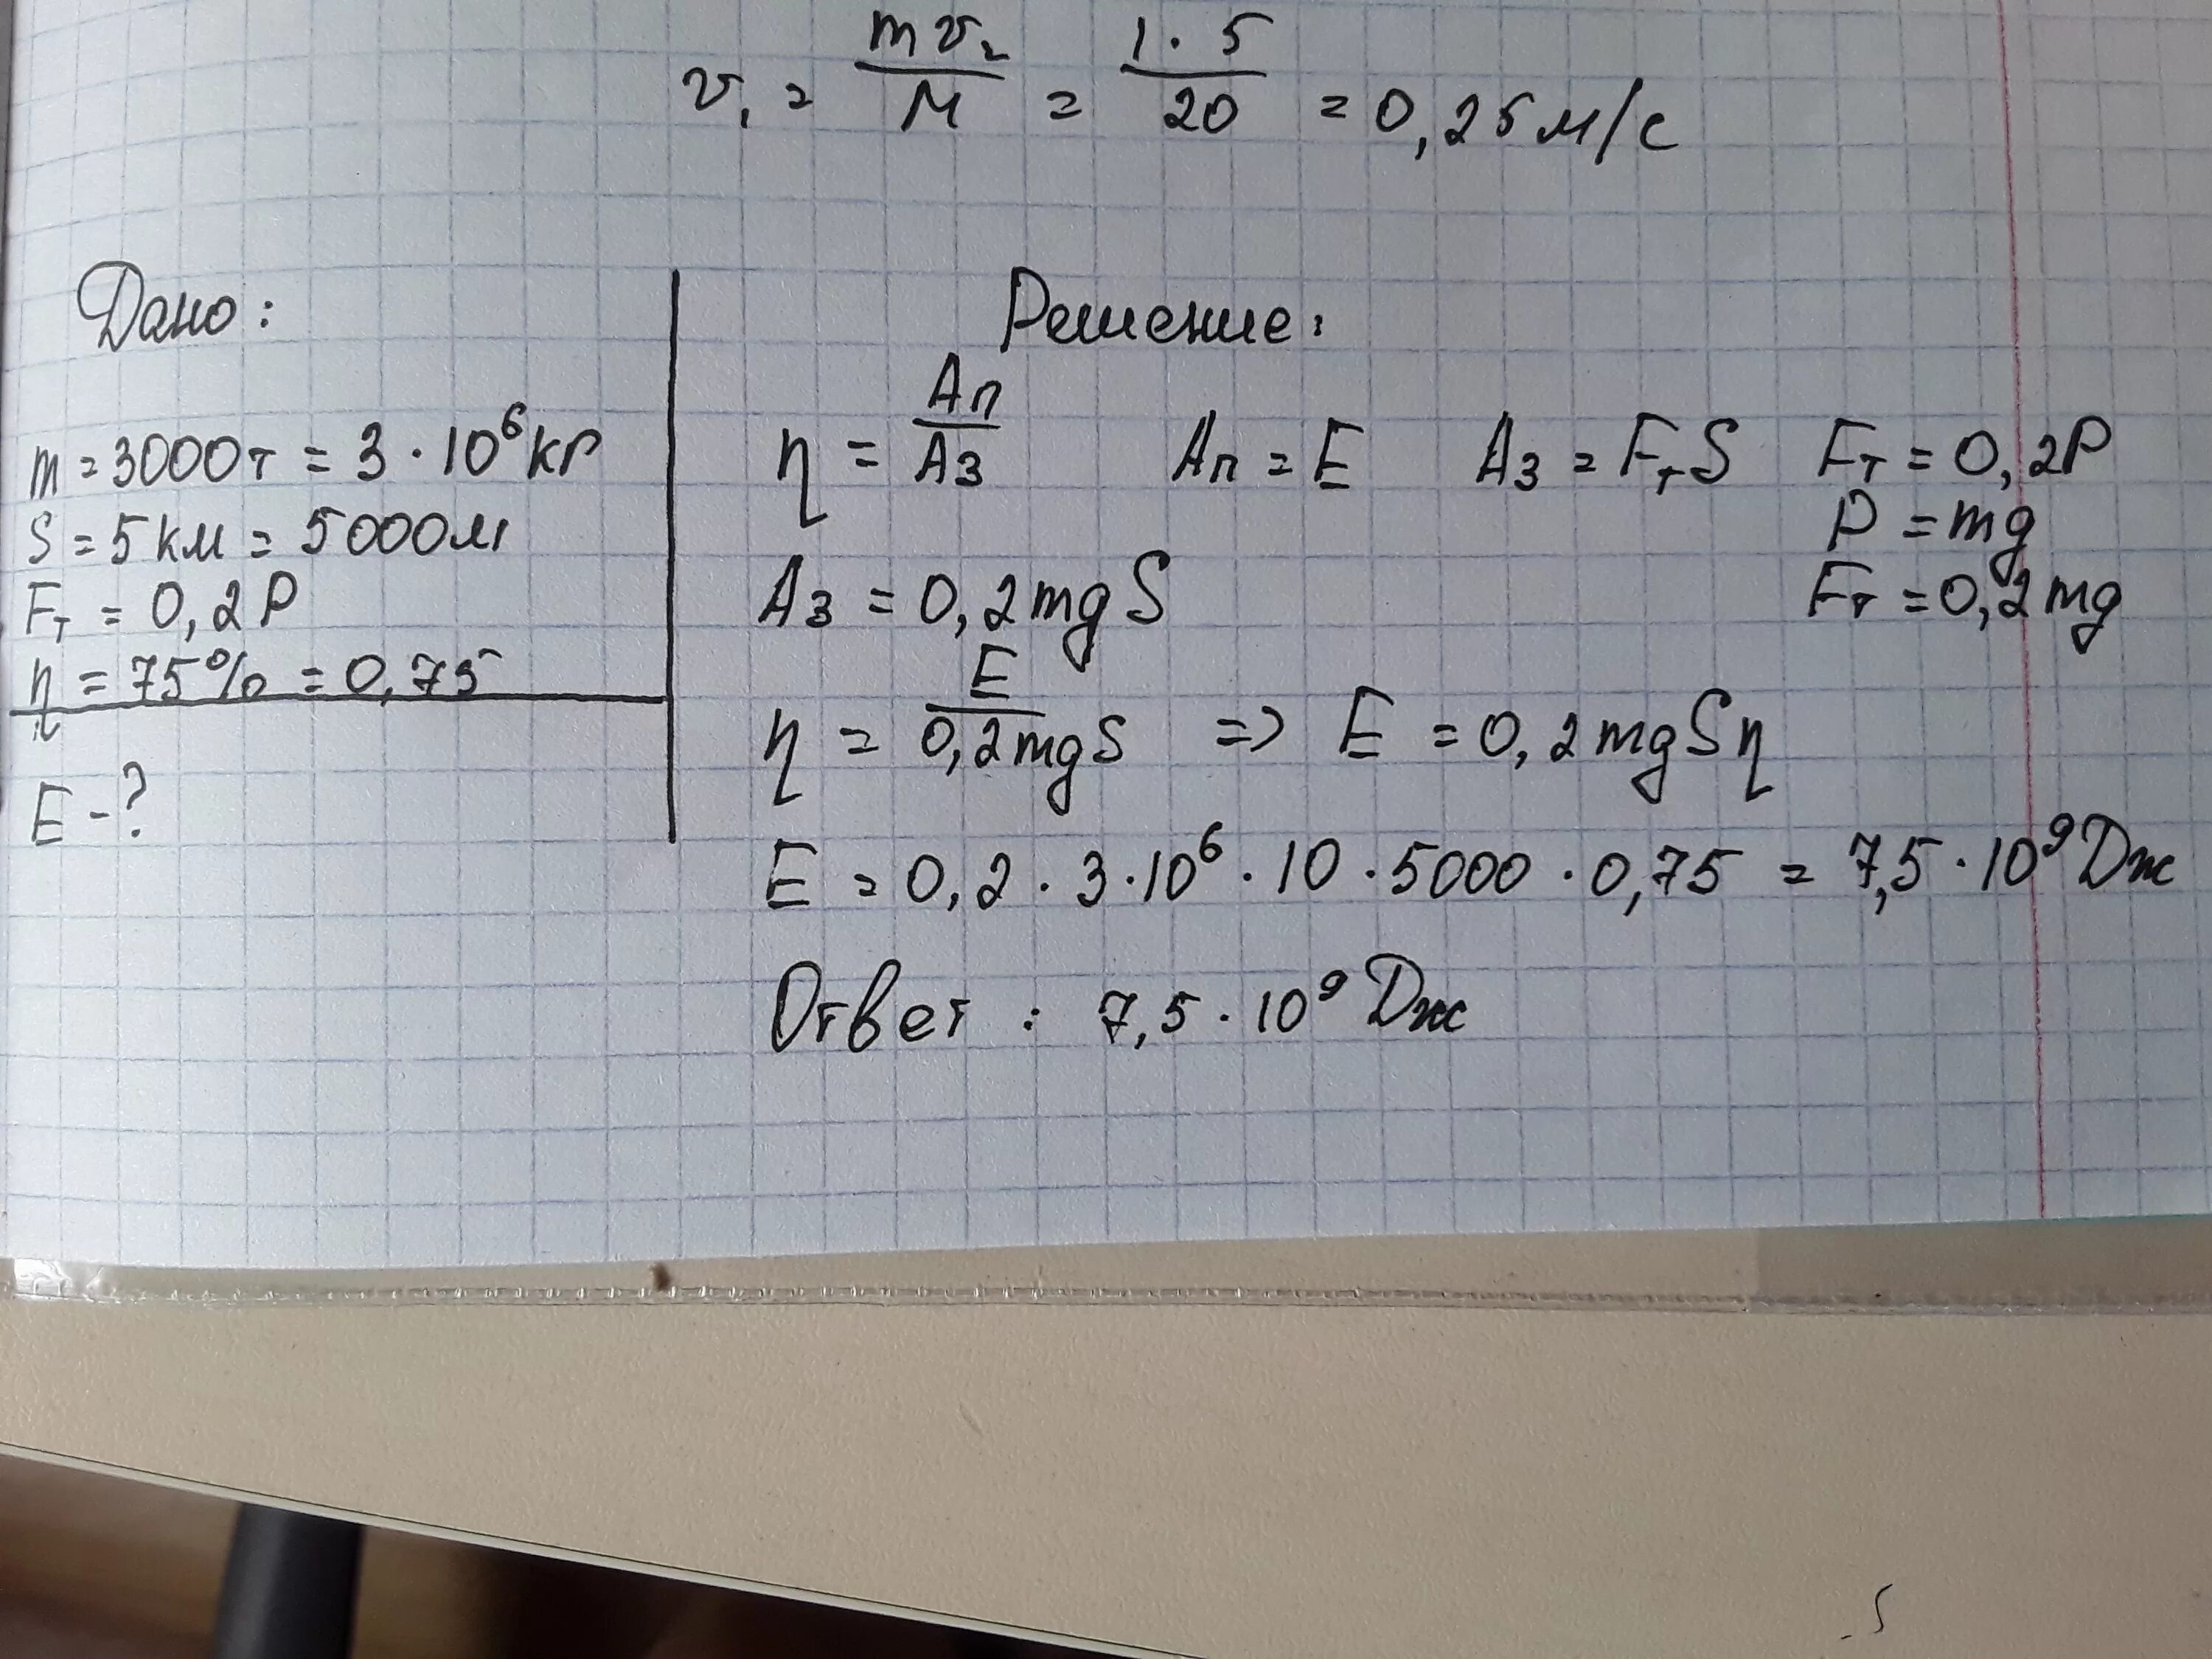 v₁ = mv₂/M = 1·5/20 = 0,25 м/с
Дано:
m = 3000т = 3·10⁶ кг
S = 5 км = 5000м
Fт = 0,2P
η = 75% = 0,75
E -?
Решение:
η = Aп/Aз Aп = E Aз = FтS Fт = 0,2P
P = mg
Aз = 0,2mgS Fт = 0,2mg
η = E/0,2mgS => E = 0,2mgSη
E = 0,2·3·10⁶·10·5000·0,75 = 7,5·10⁹ Дж
Ответ: 7,5·10⁹ Дж